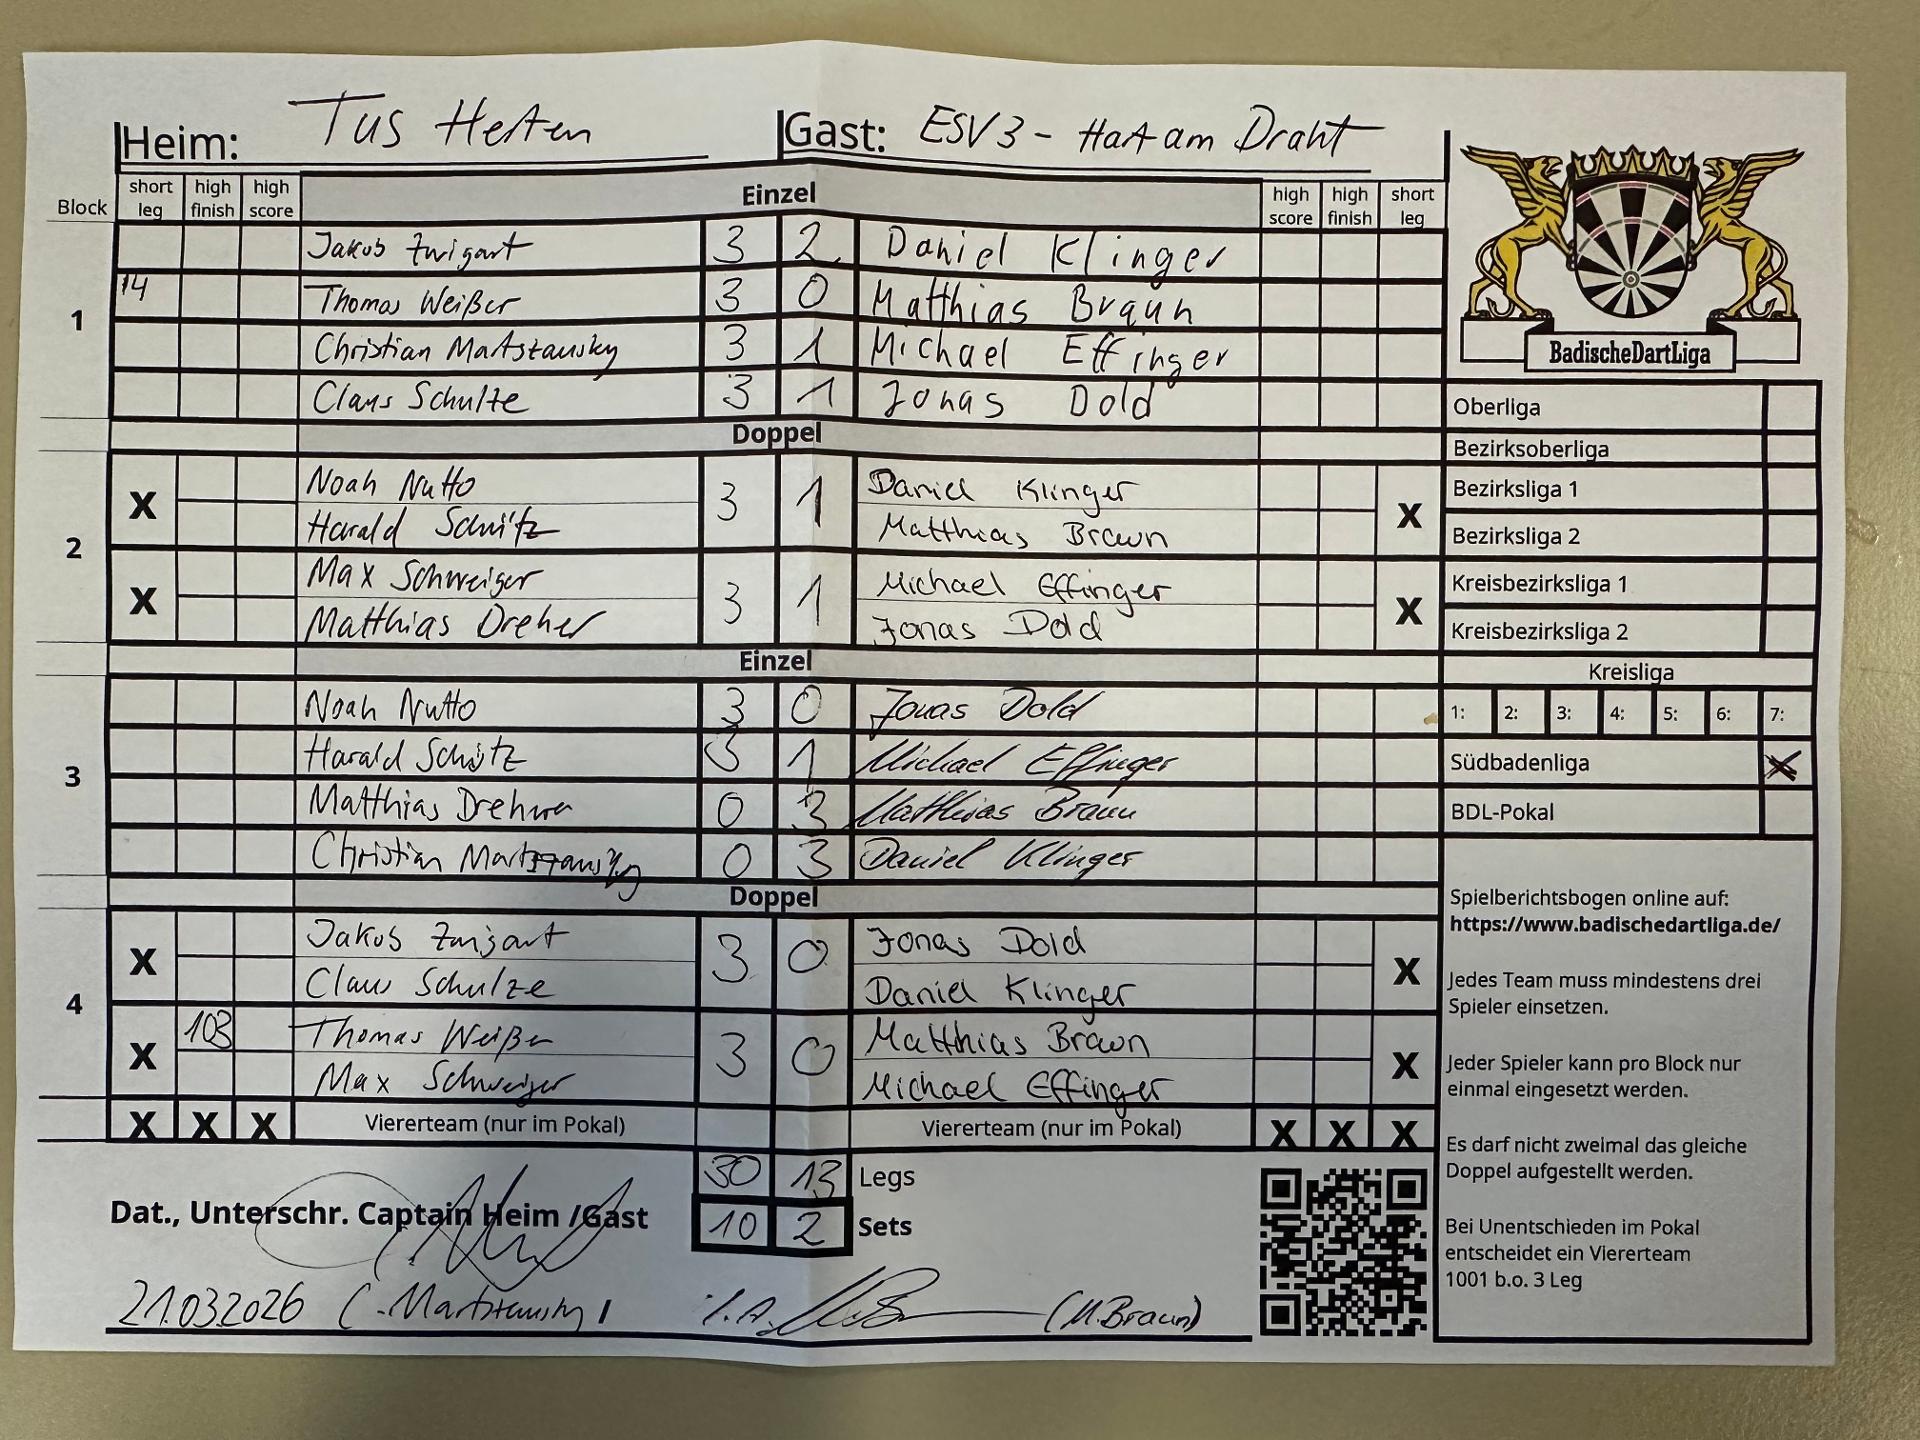 Heim: Tus Herten Gast: ESV3 - Hart am Draht
Block short leg high finish high score Einzel high score high finish short leg
1
Jakob Zwigart 3 2 Daniel Klinger
14 Thomas Weißer 3 0 Matthias Braun
Christian Martszausky 3 1 Michael Effinger
Claus Schulte 3 1 Jonas Dold
Doppel
2
X Noah Nutto 3 1 Daniel Klinger X
Harald Schütz Matthias Braun
X Max Schweiger 3 1 Michael Effinger X
Matthias Dreher Jonas Dold
Einzel
3
Noah Nutto 3 0 Jonas Dold
Harald Schütz 3 1 Michael Effinger
Matthias Dreher 0 3 Matthias Braun
Christian 0 3 Daniel Klinger
Doppel
4
X Jakob Zwigart 3 0 Jonas Dold X
Claus Schulze Daniel Klinger
X 103 Thomas Weißer 3 0 Matthias Braun X
Max Schweiger Michael Effinger
X X X Viererteam (nur im Pokal) Viererteam (nur im Pokal) X X X
30 13 Legs
10 2 Sets
Dat., Unterschr. Captain Heim /Gast
21.03.2026 I i.A. (M.Braun)
BadischeDartLiga
Oberliga
Bezirksoberliga
Bezirksliga 1
Bezirksliga 2
Kreisbezirksliga 1
Kreisbezirksliga 2
Kreisliga
1: 2: 3: 4: 5: 6: 7:
Südbadenliga X
BDL-Pokal
Spielberichtsbogen online auf:
https://www.badischedartliga.de/
Jedes Team muss mindestens drei
Spieler einsetzen.
Jeder Spieler kann pro Block nur
einmal eingesetzt werden.
Es darf nicht zweimal das gleiche
Doppel aufgestellt werden.
Bei Unentschieden im Pokal
entscheidet ein Viererteam
1001 b.o. 3 Leg